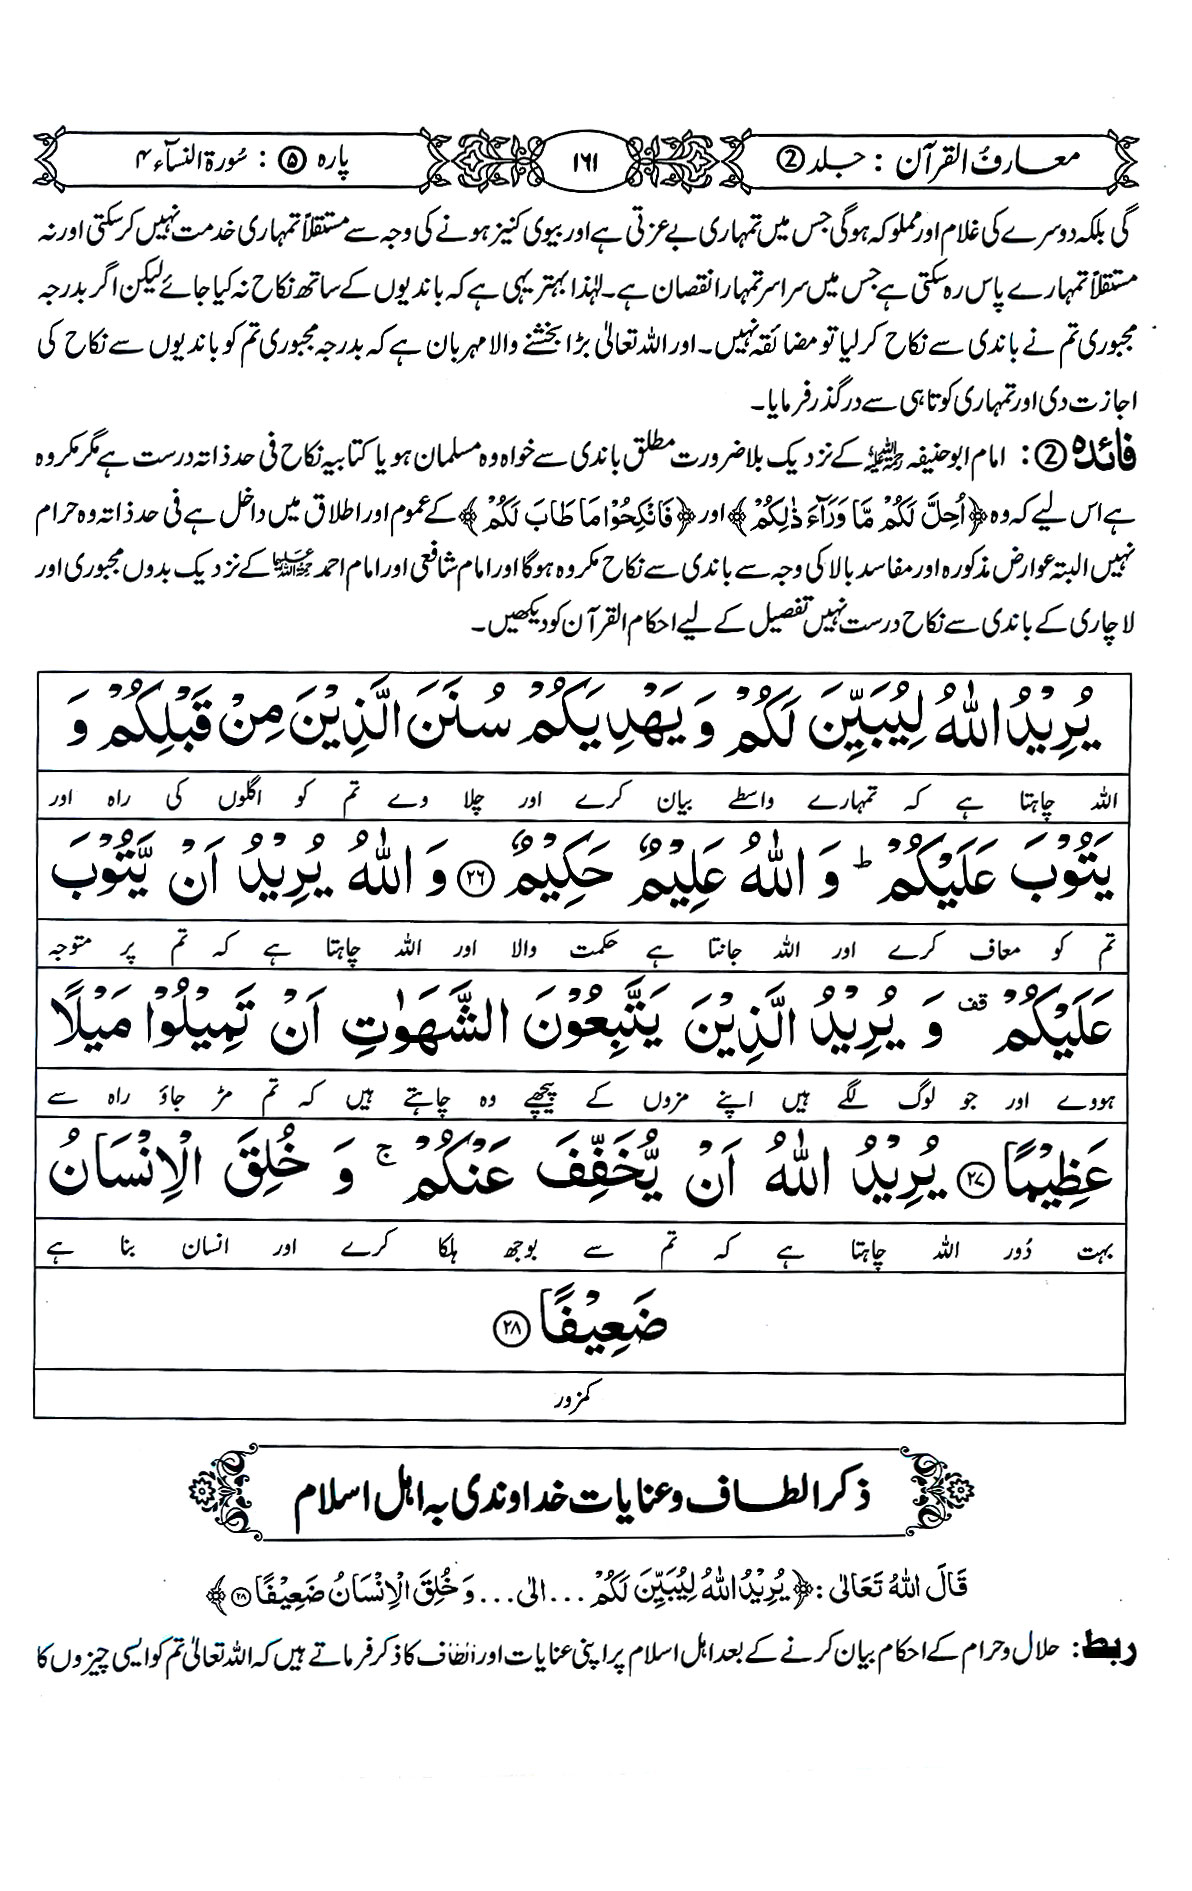 معارف القرآن : جلد ②
۱۶۱
پارہ ⑤ : سُورۃ النسآء ۴
گی بلکہ دوسرے کی غلام اور مملوکہ ہوگی جس میں تمہاری بے عزتی ہے اور بیوی کنیز ہونے کی وجہ سے مستقلاً تمہاری خدمت نہیں کر سکتی اور نہ
مستقلاً تمہارے پاس رہ سکتی ہے جس میں سراسر تمہارا نقصان ہے۔ لہٰذا بہتر یہی ہے کہ باندیوں کے ساتھ نکاح نہ کیا جائے لیکن اگر بدرجہ
مجبوری تم نے باندی سے نکاح کر لیا تو مضائقہ نہیں۔ اور اللہ تعالیٰ بڑا بخشنے والا مہربان ہے کہ بدرجہ مجبوری تم کو باندیوں سے نکاح کی
اجازت دی اور تمہاری کوتاہی سے درگذر فرمایا۔
فائدہ ②: امام ابوحنیفہ رحمہ اللہ کے نزدیک بلا ضرورت مطلق باندی سے خواہ وہ مسلمان ہو یا کتابیہ نکاح فی حد ذاتہ درست ہے مگر مکروہ
ہے اس لیے کہ وہ ﴿اُحِلَّ لَكُمْ مَّا وَرَآءَ ذٰلِكُمْ﴾ اور ﴿فَانْكِحُوْا مَا طَابَ لَكُمْ﴾ کے عموم اور اطلاق میں داخل ہے فی حد ذاتہ وہ حرام
نہیں البتہ عوارض مذکورہ اور مفاسد بالا کی وجہ سے باندی سے نکاح مکروہ ہوگا اور امام شافعی اور امام احمد کے نزدیک بدوں مجبوری اور
لاچاری کے باندی سے نکاح درست نہیں تفصیل کے لیے احکام القرآن کو دیکھیں۔
يُرِيْدُ اللّٰهُ لِيُبَيِّنَ لَكُمْ وَ يَهْدِيَكُمْ سُنَنَ الَّذِيْنَ مِنْ قَبْلِكُمْ وَ
اللہ چاہتا ہے کہ تمہارے واسطے بیان کرے اور چلا وے تم کو اگلوں کی راہ اور
يَتُوْبَ عَلَيْكُمْ ؕ وَ اللّٰهُ عَلِيْمٌ حَكِيْمٌ ۝۲۶ وَ اللّٰهُ يُرِيْدُ اَنْ يَّتُوْبَ
تم کو معاف کرے اور اللہ جانتا ہے حکمت والا اور اللہ چاہتا ہے کہ تم پر متوجہ
عَلَيْكُمْ ۫ وَ يُرِيْدُ الَّذِيْنَ يَتَّبِعُوْنَ الشَّهَوٰتِ اَنْ تَمِيْلُوْا مَيْلًا
ہووے اور جو لوگ لگے ہیں اپنے مزوں کے پیچھے وہ چاہتے ہیں کہ تم مڑ جاؤ راہ سے
عَظِيْمًا ۝۲۷ يُرِيْدُ اللّٰهُ اَنْ يُّخَفِّفَ عَنْكُمْ ۚ وَ خُلِقَ الْاِنْسَانُ
بہت دُور اللہ چاہتا ہے کہ تم سے بوجھ ہلکا کرے اور انسان بنا ہے
ضَعِيْفًا ۝۲۸
کمزور
ذکر الطاف و عنایات خداوندی بہ اہل اسلام
قَالَ اللهُ تَعَالٰی : ﴿يُرِيْدُ اللّٰهُ لِيُبَيِّنَ لَكُمْ ... الی ... وَ خُلِقَ الْاِنْسَانُ ضَعِيْفًا ۝۲۸﴾
ربط: حلال و حرام کے احکام بیان کرنے کے بعد اہل اسلام پر اپنی عنایات اور الطاف کا ذکر فرماتے ہیں کہ اللہ تعالیٰ تم کو ایسی چیزوں کا